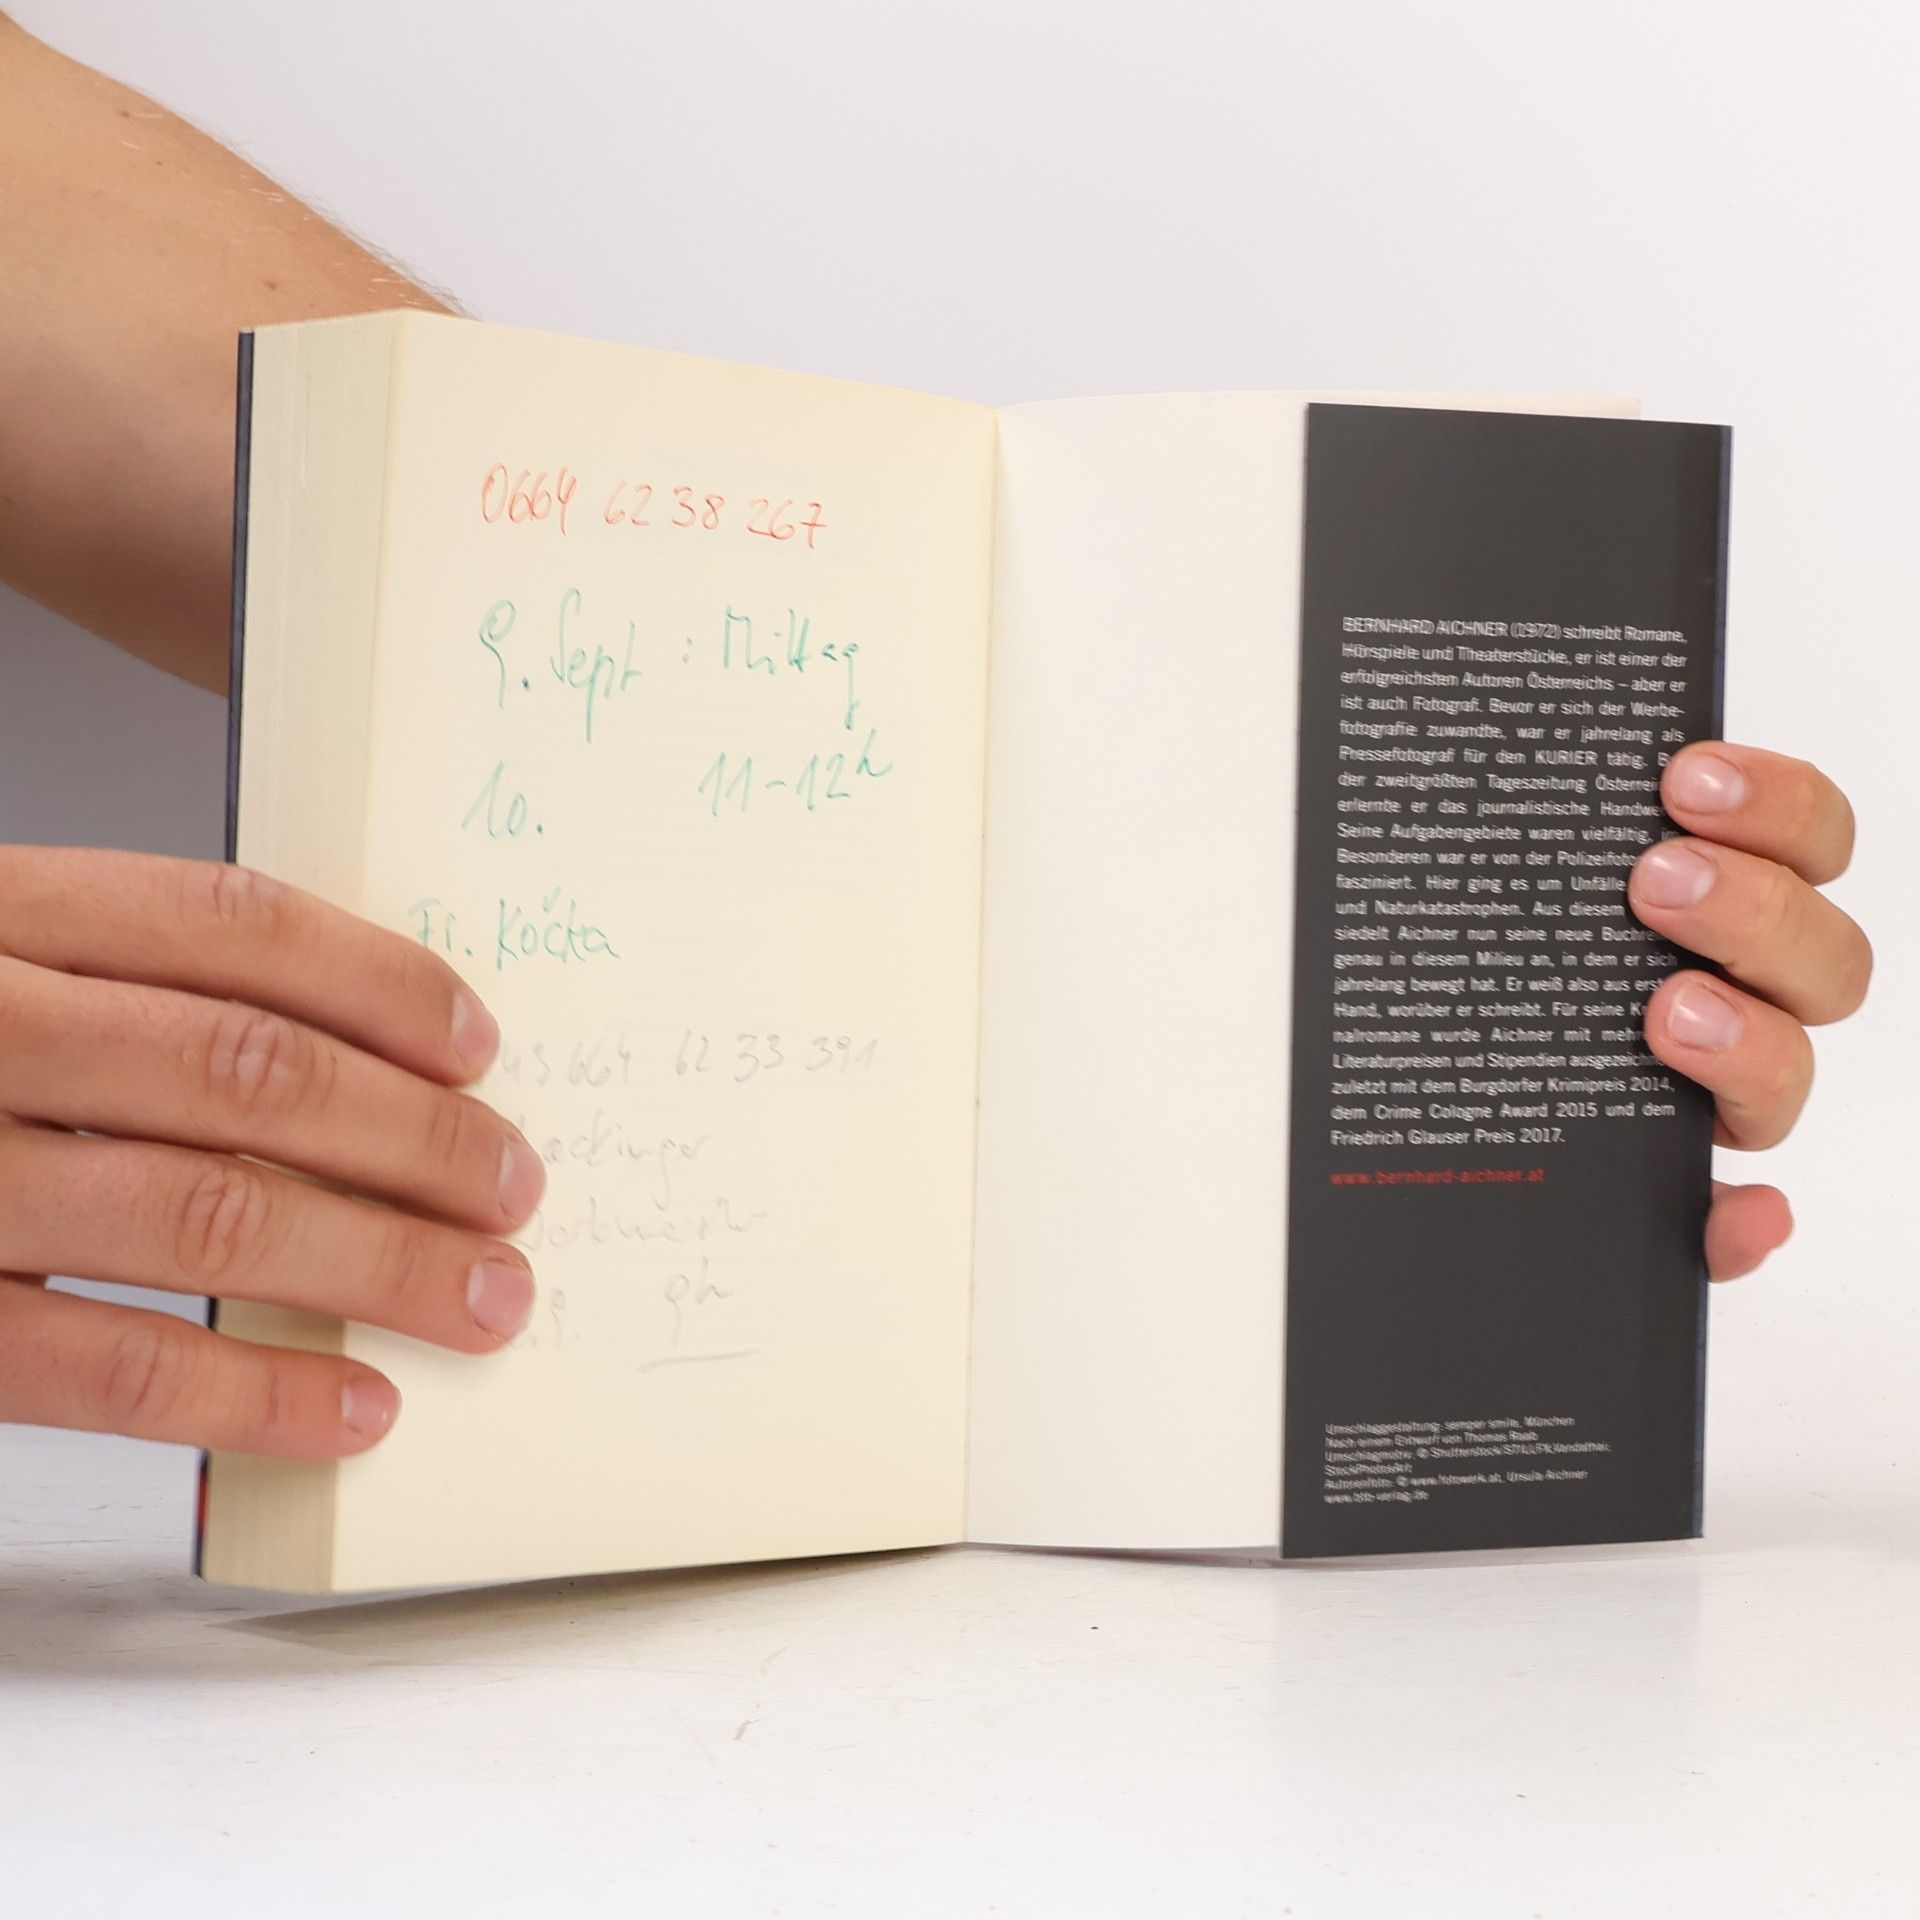 0664 62 38 267
9. Sept : Mittag
10. 11-12h
Fr. Kočka
43 664 62 33 391
9h
BERNHARD AICHNER (1972) schreibt Romane,
Hörspiele und Theaterstücke, er ist einer der
erfolgreichsten Autoren Österreichs – aber er
ist auch Fotograf. Bevor er sich der Werbe-
fotografie zuwandte, war er jahrelang als
Pressefotograf für den KURIER tätig.
der zweitgrößten Tageszeitung
erlernte er das journalistische
Seine Aufgabengebiete waren vielfältig,
Besonderen war er von der
fasziniert. Hier ging es um Unfälle
und Naturkatastrophen. Aus diesem
siedelt Aichner nun seine neue
genau in diesem Milieu an, in dem er sich
jahrelang bewegt hat. Er weiß also aus
Hand, worüber er schreibt. Für seine
nalromane wurde Aichner mit
Literaturpreisen und Stipendien
zuletzt mit dem Burgdorfer Krimipreis 2014,
dem Crime Cologne Award 2015 und dem
Friedrich Glauser Preis 2017.
www.bernhard-aichner.at
Umschlaggestaltung: semper smile, München
Nach einem Entwurf von Thomas Raab
Umschlagmotiv: © Shutterstock/
StockPhotosArt;
Autorenfoto: © www.fotowerk.at, Ursula Aichner
www.btb-verlag.de